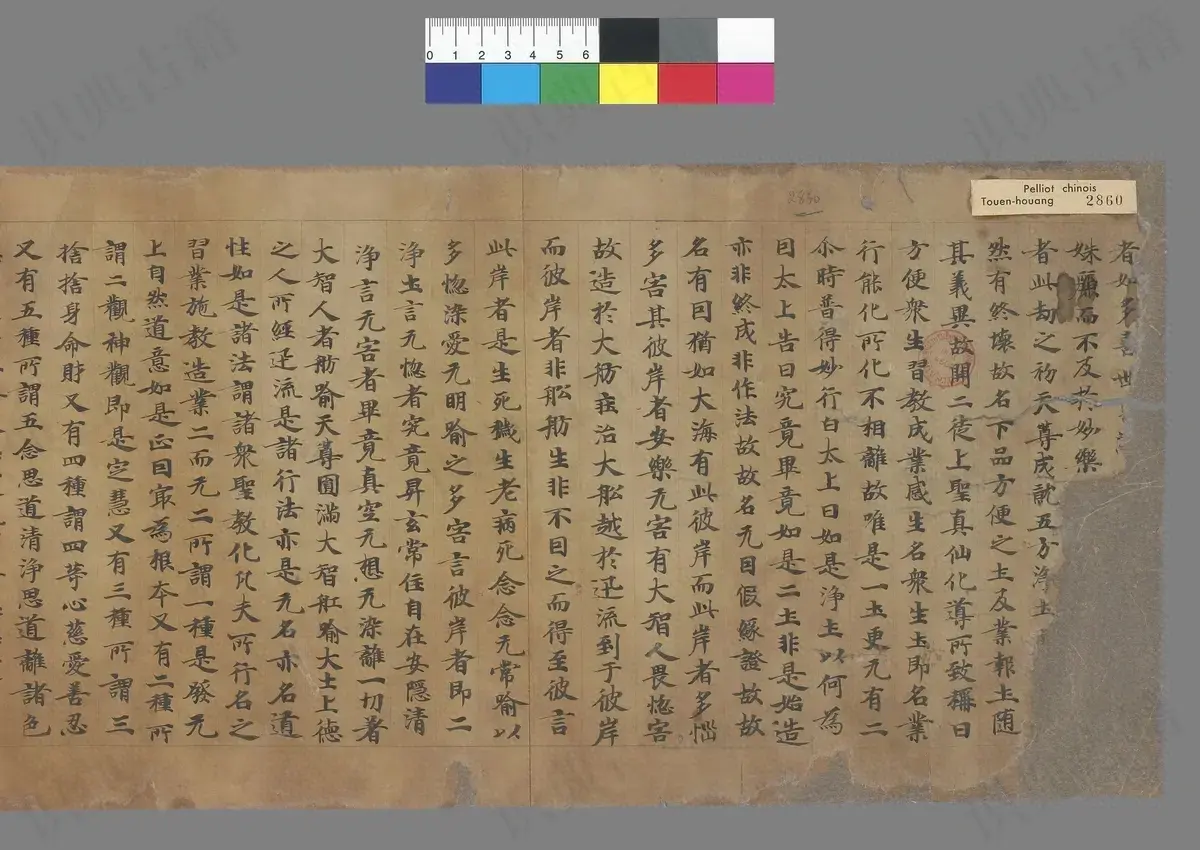 Pelliot chinois
Touen-houang 2860
2860
0 1 2 3 4 5 6
者如多
姝麗而不及於妙樂
者此劫之初天尊成就五方淨土
然有終壞故名下品方便之土及業報土随
其義異故開二徒上聖真仙化導所致稱曰
方便衆生習教成業感生名衆生土即名業
行能化所化不相離故唯是一土更无有二
尒時普得妙行白太上曰如是淨土以何為
因太上告曰究竟畢竟如是二土非是始造
亦非終成非作法故故名无因假緣證故故
名有因猶如大海有此彼岸而此岸者多惱
多害其彼岸者安樂无害有大智人畏惱害
故造於大舫在治大舩越於迅流到于彼岸
而彼岸者非舩舫生非不因之而得至彼言
此岸者是生死穢生老病死念念无常喻以
多惱染愛无明喻之多害言彼岸者即二
淨土言无惱者究竟昇玄常住自在安隱清
淨言无害者畢竟真空无想无染離一切著
大智人者舫喻天尊圓滿大智舡喻大士上德
之人所經迅流是諸行法亦是无名亦名道
性如是諸法謂諸衆聖教化凡夫所行名之
習業施教造業二而无二所謂一種是發无
上自然道意如是正因㝡為根本又有二種所
謂二觀神觀即是定慧又有三種所謂三
捨捨身命財又有四種謂四等心慈愛善忍
又有五種所謂五念思道清淨思道離諸色
识典古籍